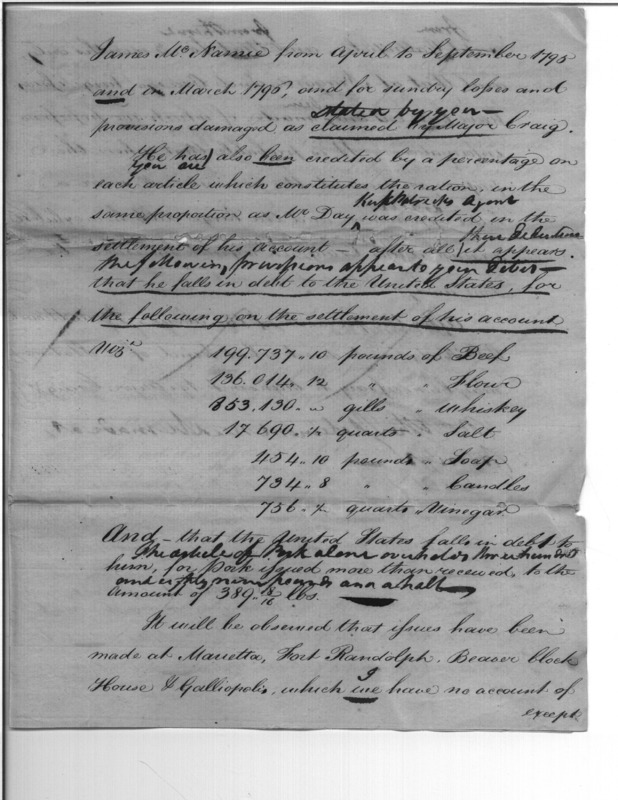 James McNamie from April to September 1795
and in March 1796, and for sundry losses and
stated by you
provisions damaged as claimed by Major Craig.
He has also ban credited by a percentage on
you are
each article which constitutes the ration, in the
Kirkpatricks Agent
same propotion as Mr Day was credited in the
settlement of his account – after all it appears
the following provisions appear to your Debit –
that he falls in debt to the United States, for
the following on the settlement of his account
Viz.
199.737 .. 10 pounds of Beef
136.014 .. 12 " " Flour
853,130 .. " gills " Whiskey
17690. ½ quarts " Salt
454 .. 10 pounds " Soap
734 .. 8 " " Candles
756. ½ quarts " Vinegar
And – that the United States falls in debt to
The article of Pork alone three hundred
him, for Pork issued more than received, to the
and eighty nine pounds and a half
Amount of 389. 8/16 lbs.
It will be observed that issues have been
made at Marietta, Fort Randolph, Beaver block
I
House & Galliopolis, which we have no account of
except